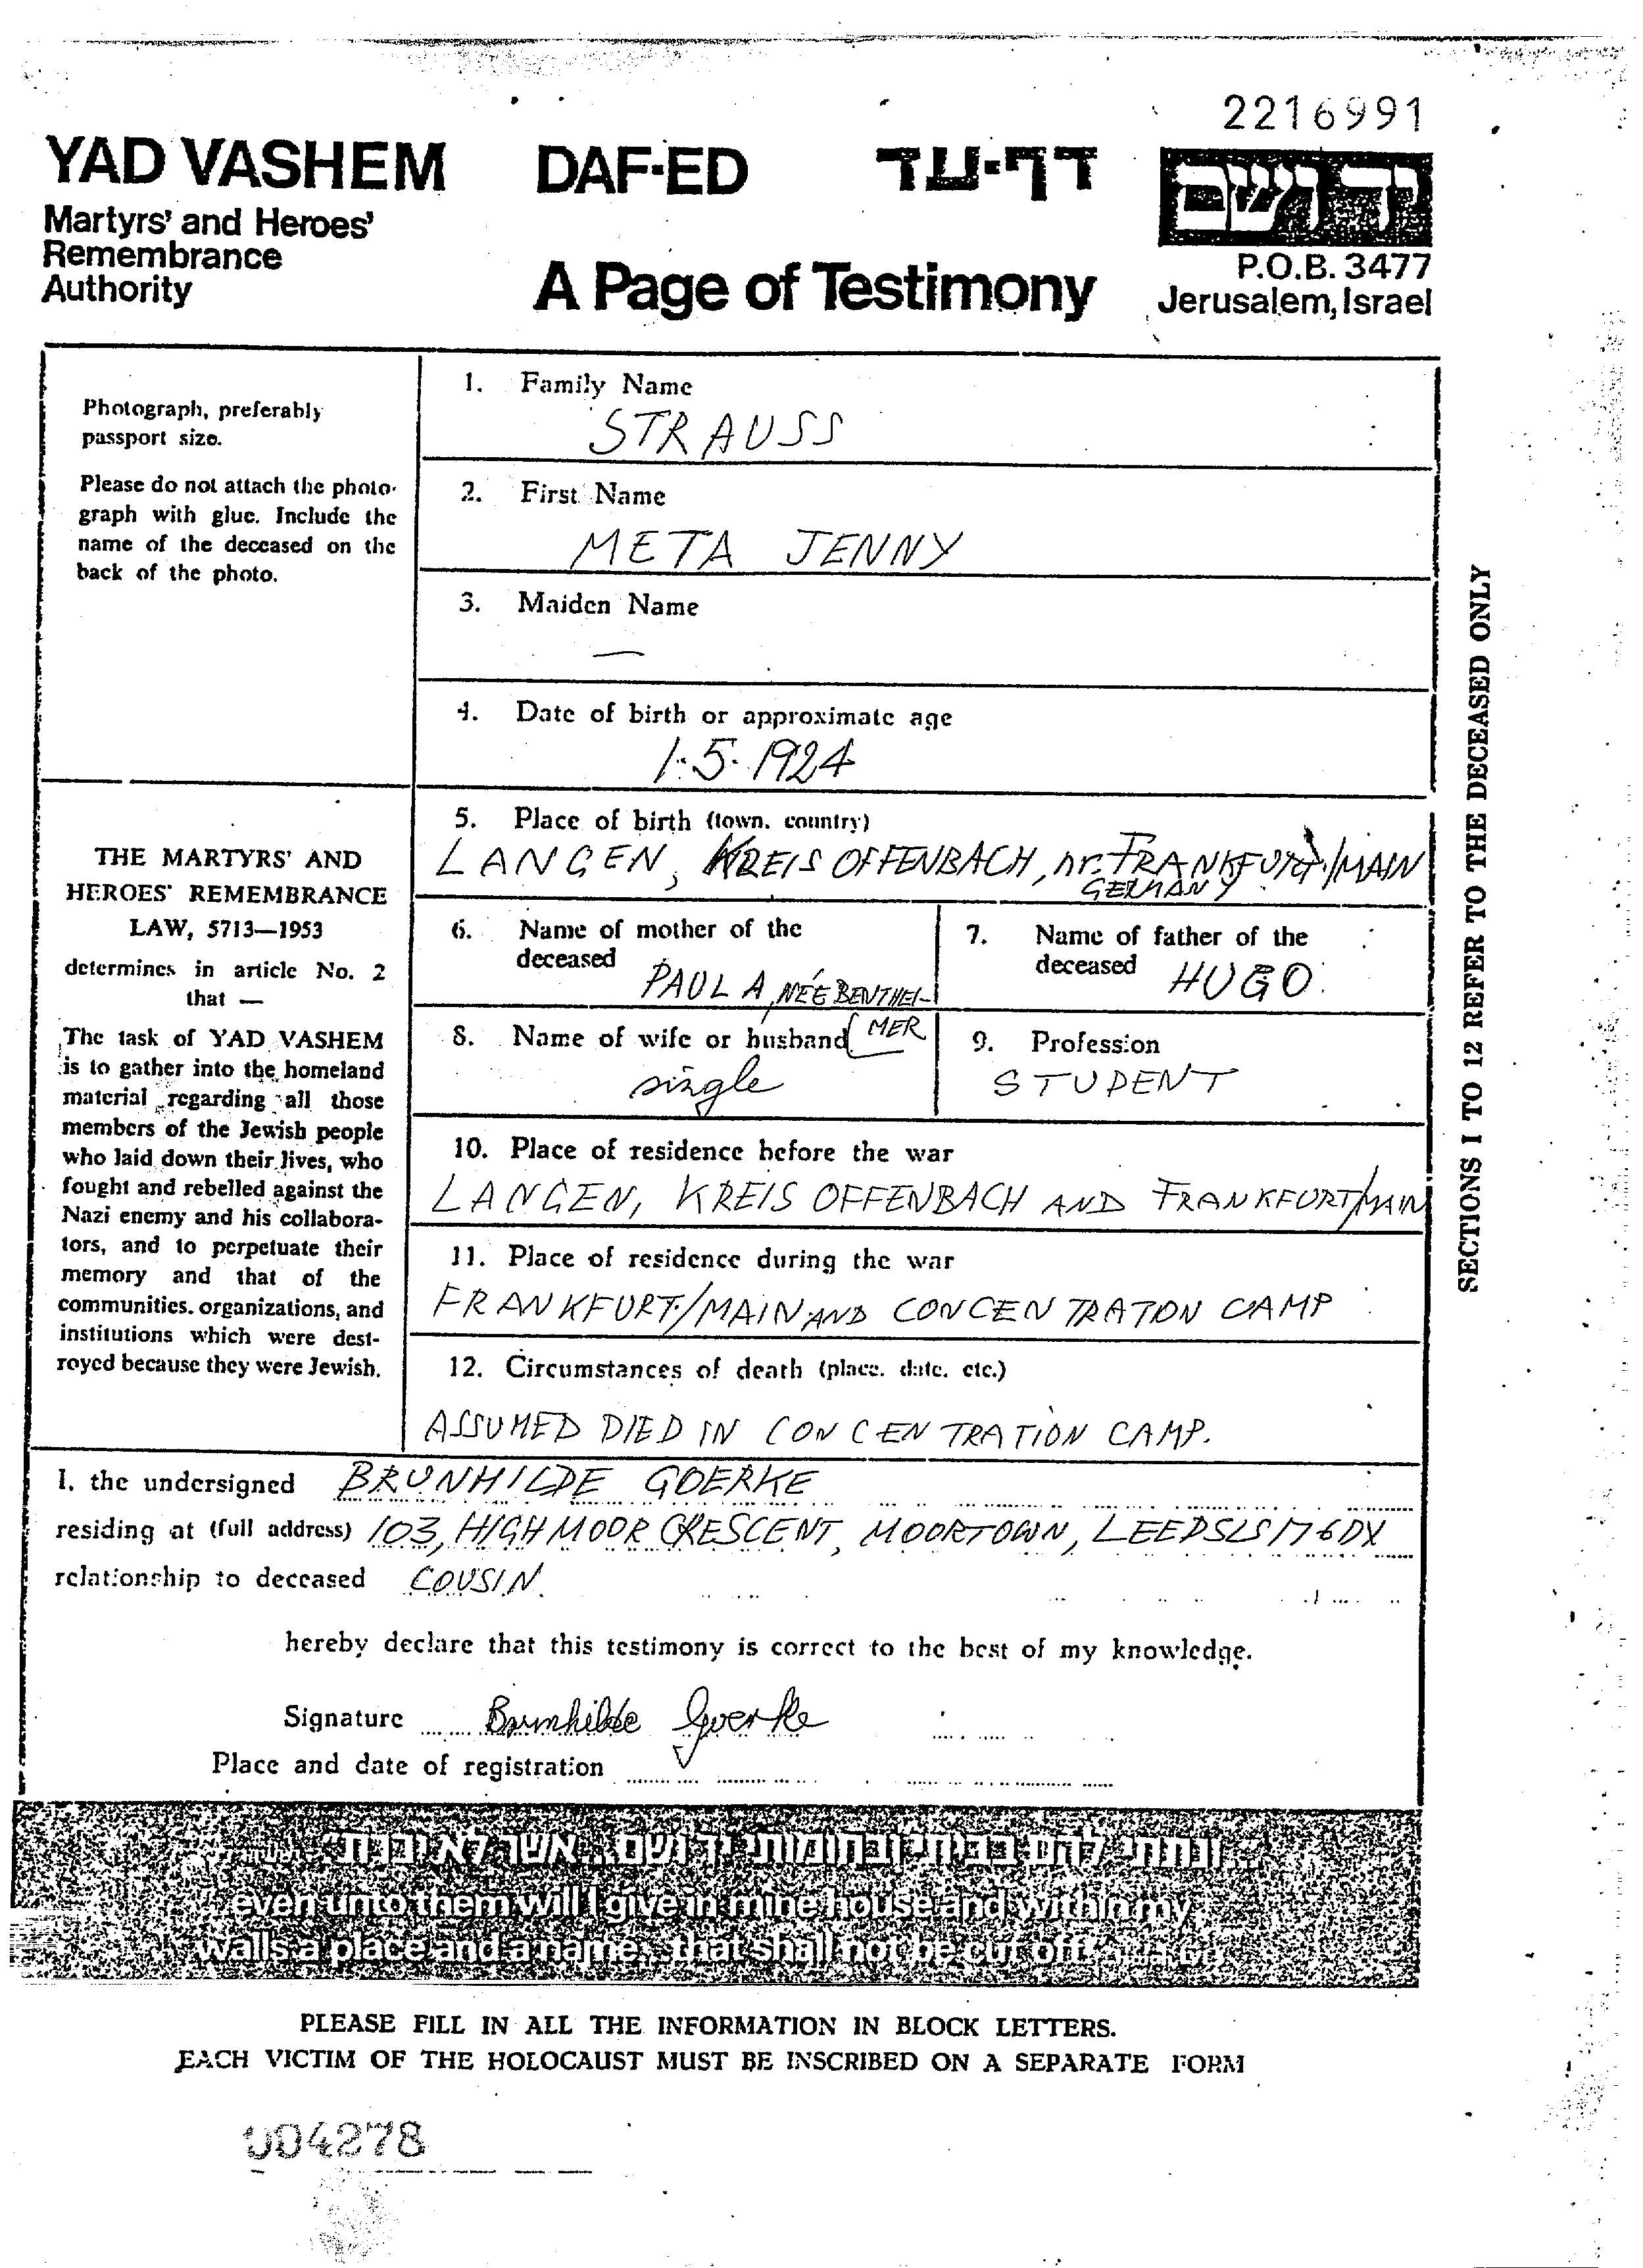 2216991
YAD VASHEM DAF-ED דף-עד ידושם
Martyrs' and Heroes'
Remembrance
Authority
A Page of Testimony
P.O.B. 3477
Jerusalem, Israel
Photograph, preferably
passport size.
Please do not attach the photo-
graph with glue. Include the
name of the deceased on the
back of the photo.
THE MARTYRS' AND
HEROES' REMEMBRANCE
LAW, 5713—1953
determines in article No. 2
that —
The task of YAD VASHEM
is to gather into the homeland
material regarding all those
members of the Jewish people
who laid down their lives, who
fought and rebelled against the
Nazi enemy and his collabora-
tors, and to perpetuate their
memory and that of the
communities, organizations, and
institutions which were dest-
royed because they were Jewish.
1. Family Name
STRAUSS
2. First Name
META JENNY
3. Maiden Name
—
4. Date of birth or approximate age
1.5.1924
5. Place of birth (town, country)
LANGEN, KREIS OFFENBACH, nr. FRANKFURT/MAIN
GERMANY
6. Name of mother of the
deceased
PAULA, NÉE BENTHEI-
MER
7. Name of father of the
deceased HUGO.
8. Name of wife or husband
single
9. Profession
STUDENT
10. Place of residence before the war
LANGEN, KREIS OFFENBACH AND FRANKFURT/MAIN
11. Place of residence during the war
FRANKFURT./MAIN AND CONCENTRATON CAMP
12. Circumstances of death (place, date, etc.)
ASSUMED DIED IN CONCENTRATION CAMP.
SECTIONS 1 TO 12 REFER TO THE DECEASED ONLY
I, the undersigned BRUNHILDE GOERKE
residing at (full address) 103, HIGH MOOR CRESCENT, MOORTOWN, LEEDS LS17 6DX
relationship to deceased COUSIN.
hereby declare that this testimony is correct to the best of my knowledge.
Signature Brunhilde Goerke
Place and date of registration
...ונתתי להם בביתי ובחומותי יד ושם...אשר לא יכרת
even unto them will I give in mine house and within my
walls a place and a name...that shall not be cut off
PLEASE FILL IN ALL THE INFORMATION IN BLOCK LETTERS.
EACH VICTIM OF THE HOLOCAUST MUST BE INSCRIBED ON A SEPARATE FORM
004278